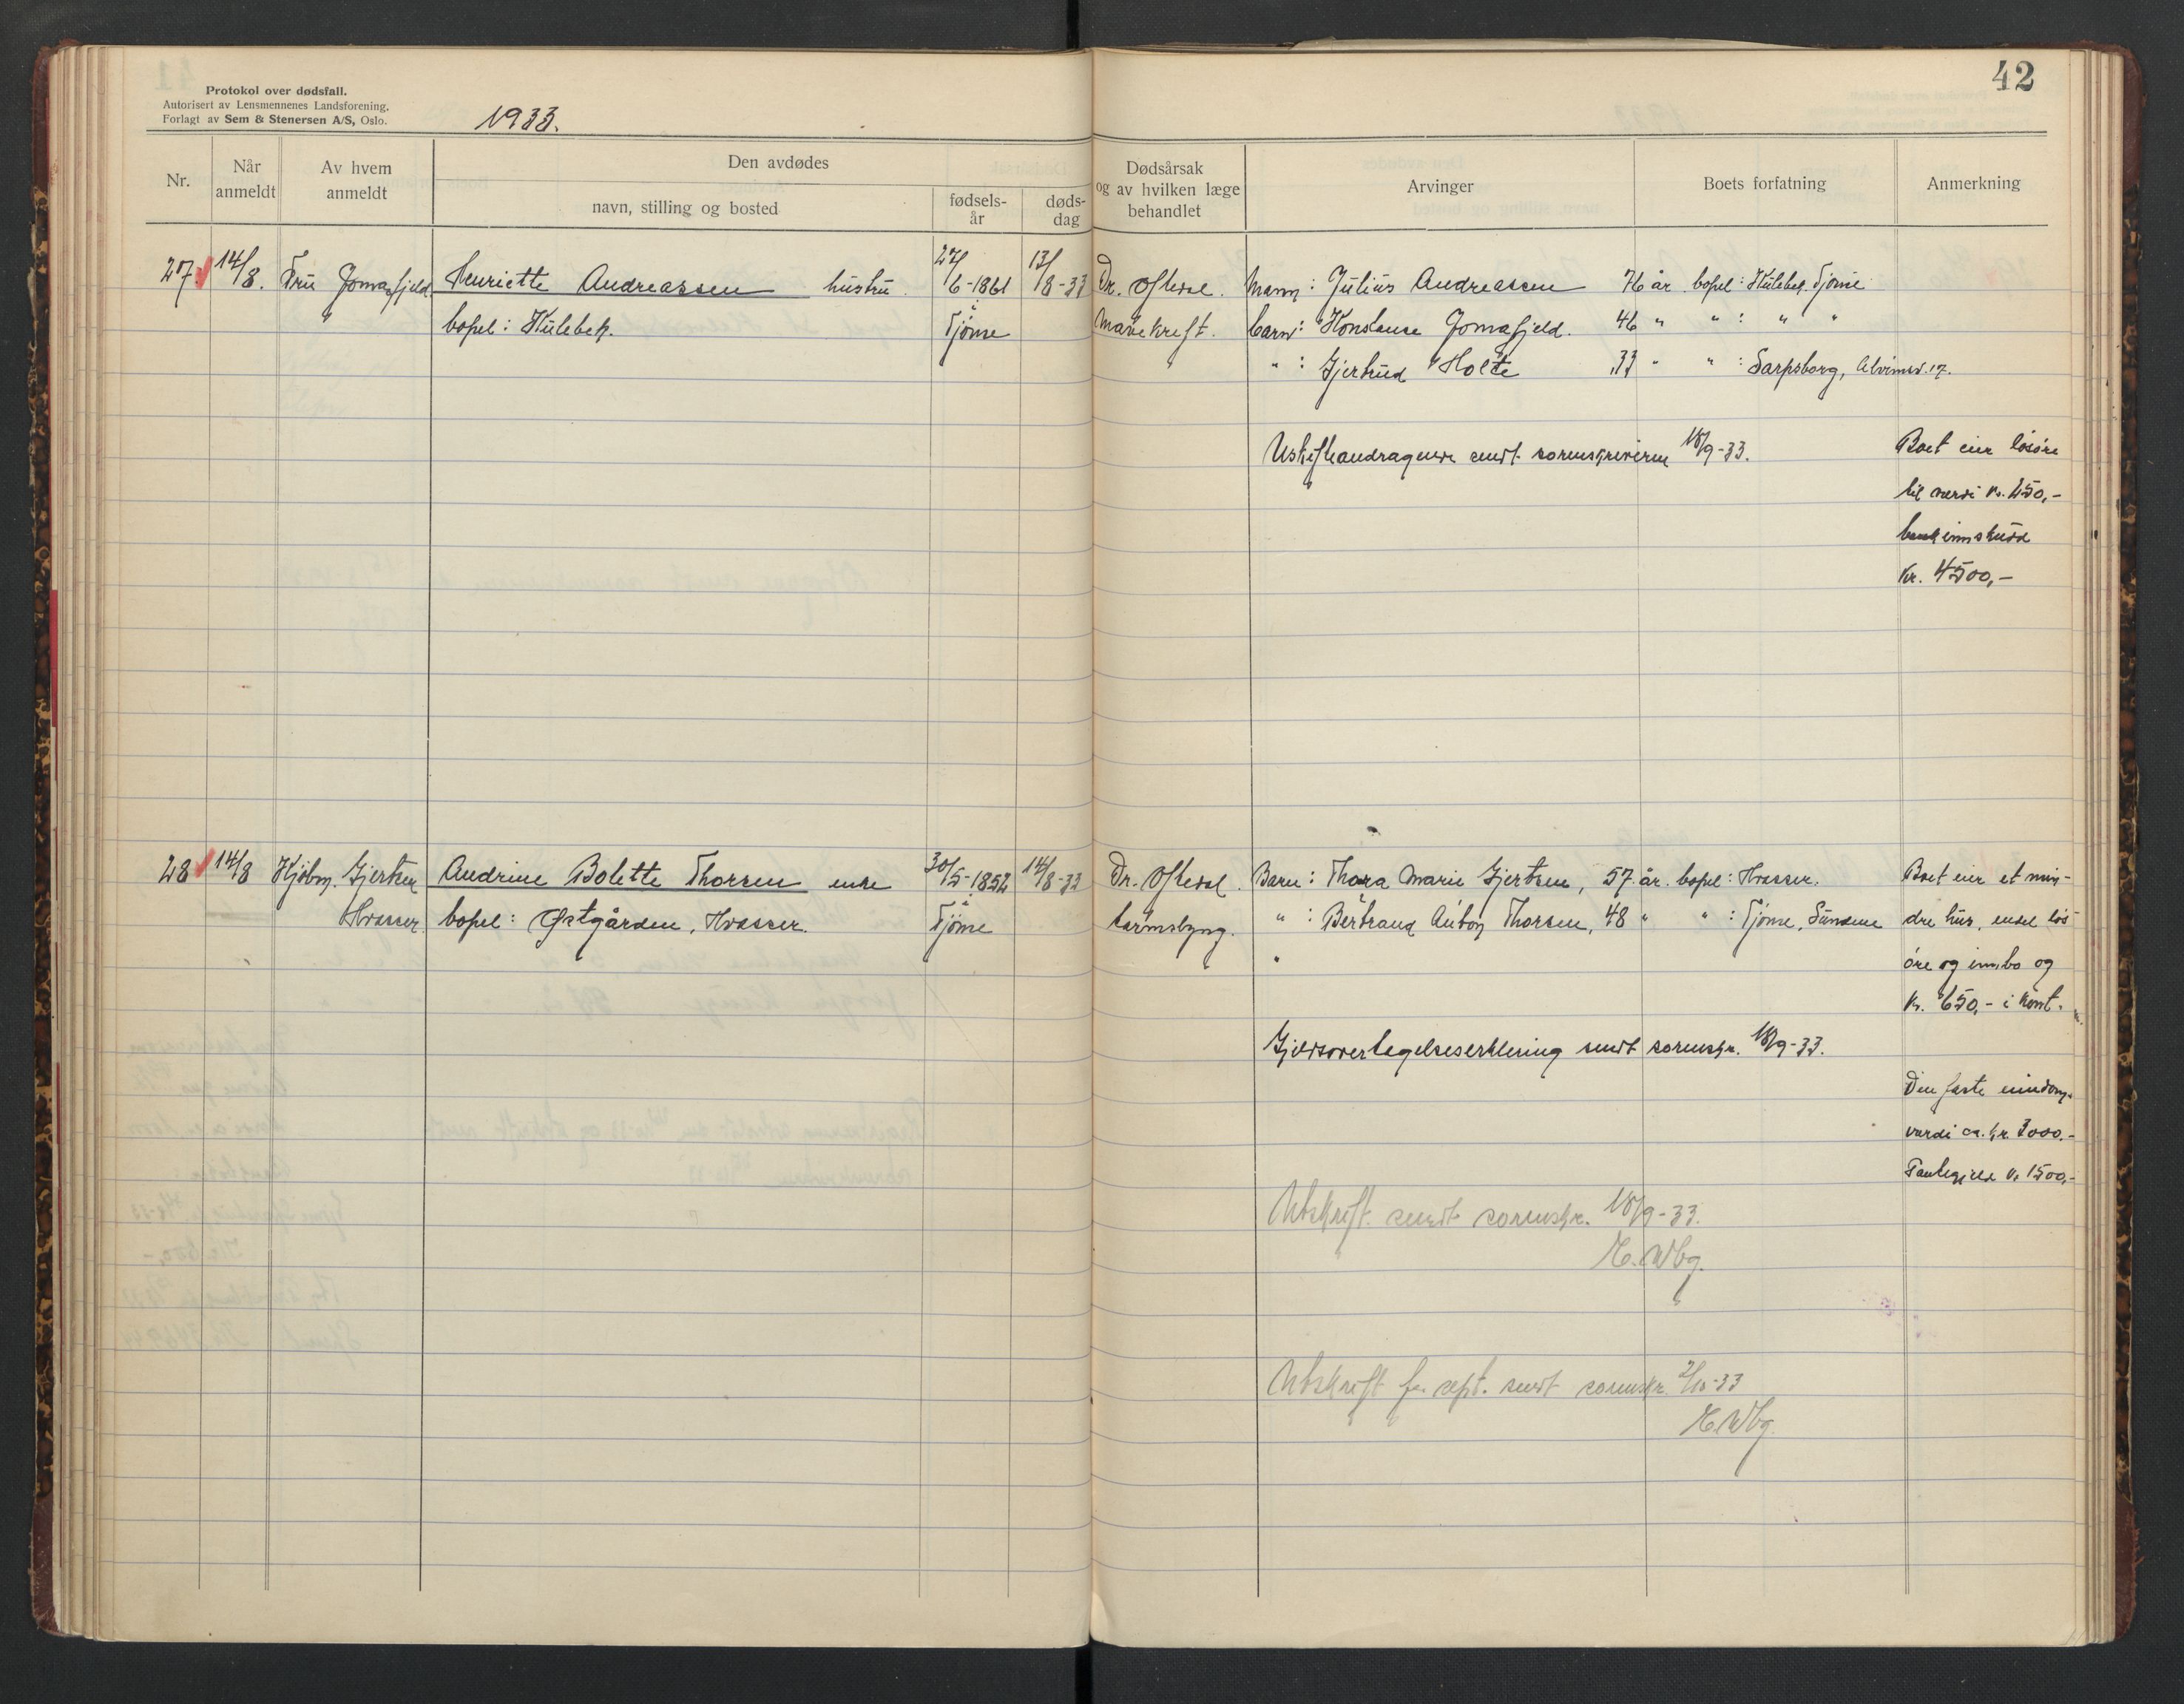 42
Protokol over dødsfall.
Autorisert av Lensmennenes Landsforening.
Forlagt av Sem & Stenersen A/S, Oslo.
1933.
Nr.
Når anmeldt
Av hvem anmeldt
Den avdødes
navn, stilling og bosted
fødsels-år
døds-dag
Dødsårsak og av hvilken læge behandlet
Arvinger
Boets forfatning
Anmerkning
27 14/8. Fru Jomafjeld Henriette Andreassen hustru. 27/6-1861 13/8-33 Dr. Oftedal. Mann: Julius Andreassen 76 år. bopel: Kulebek. Tjøme
bopel: Kulebek. Tjøme Mavekreft. barn: Konstanse Jomafjeld. 46 " " : " "
" : Gjertrud Holte 33 " " : Sarpsborg, Alvimv. 17.
Uskifteandragende sendt sorenskriveren 18/9-33. Boet eier løsøre
til verdi kr. 250,-
bankinnskudd
kr. 4500,-
28 14/8 Kjøbm. Gjertsen Andrine Bolette Thorsen enke 30/5-1852 14/8-33 Dr. Oftedal. Barn: Thora Marie Gjertsen, 57 år. bopel: Hvasser. Boet eier et min-
Hvasser. bopel: Østgården, Hvasser. Tjøme tarmslyng. " : Bertrand Anton Thorsen, 48 " " : Tjøme, Sundene dre hus, endel løs-
" øre og innbo og
kr. 650,- i kont.
Gjeldsovertagelseserklering sendt sorenskr. 18/9-33.
Den faste eiendom
verdi ca. kr. 3000.-
Pantegjeld kr. 1500,-
Utskrift sendt sorenskr. 18/9-33.
H. Wbg.
Utskrift for sept. sendt sorenskr. 2/10-33
H. Wbg.